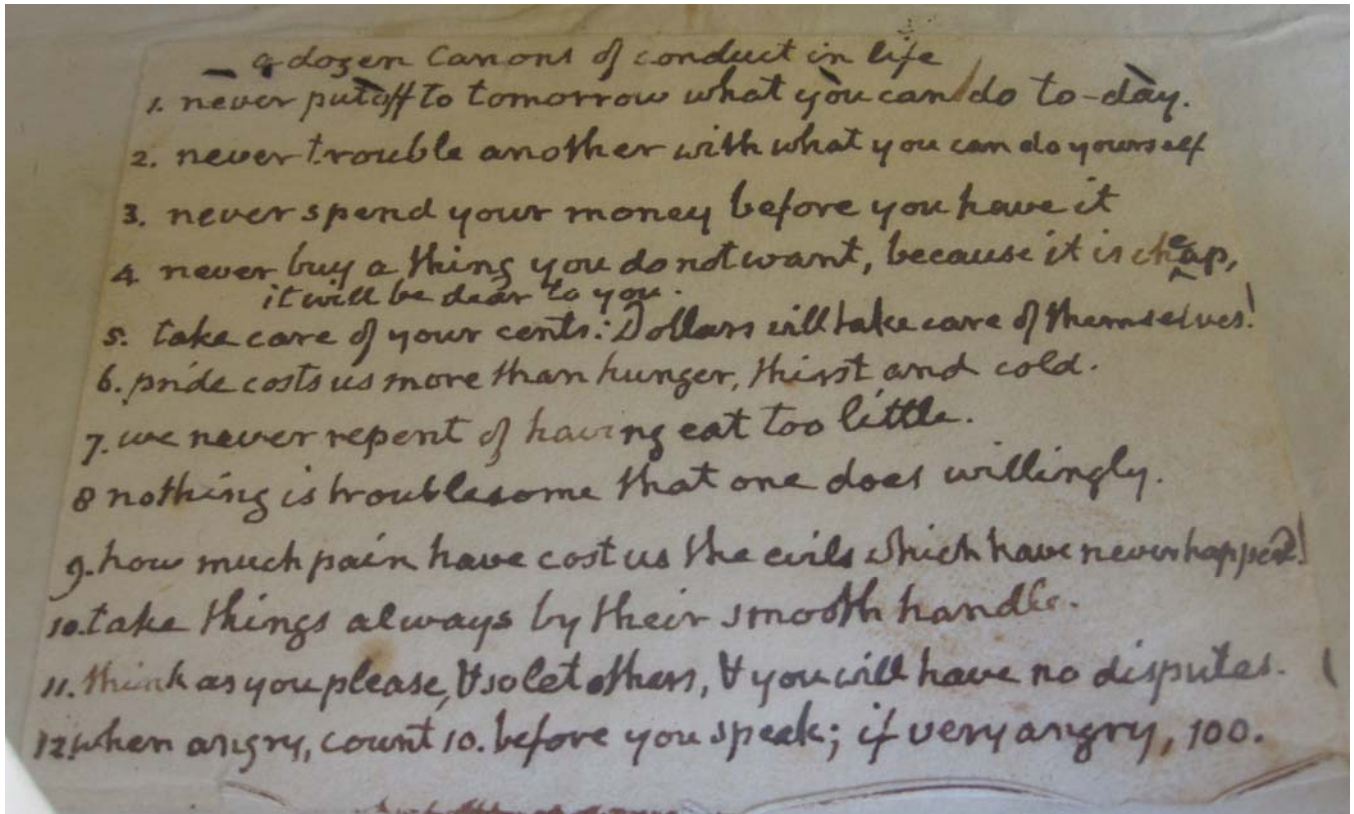 a dozen Canons of conduct in life
1. never put off to tomorrow what you can do to-day.
2. never trouble another with what you can do yourself
3. never spend your money before you have it
4 never buy a thing you do not want, because it is cheap,
it will be dear to you.
5. take care of your cents: Dollars will take care of themselves!
6. pride costs us more than hunger, thirst and cold.
7. we never repent of having eat too little.
8 nothing is troublesome that one does willingly.
9. how much pain have cost us the evils which have never happened!
10. take things always by their smooth handle.
11. think as you please, & so let others, & you will have no disputes.
12. when angry, count 10. before you speak; if very angry, 100.